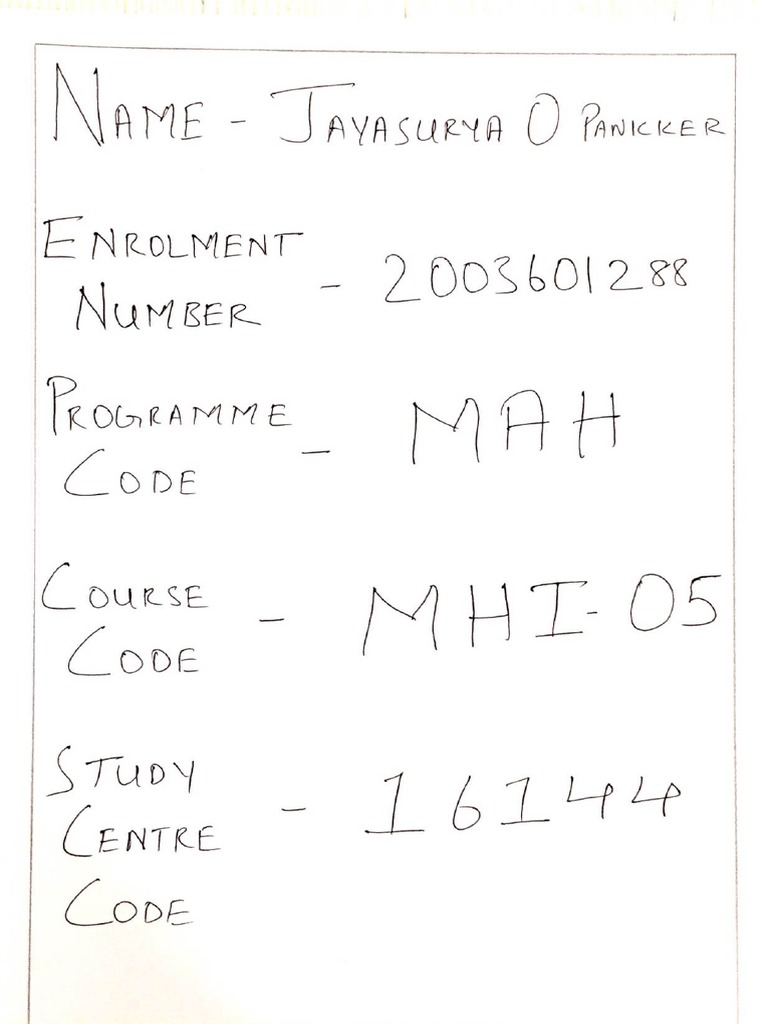 NAME - JAYASURYA O PANICKER
ENROLMENT
NUMBER - 2003601288
PROGRAMME
CODE - MAH
COURSE
CODE - MHI-05
STUDY
CENTRE - 16144
CODE